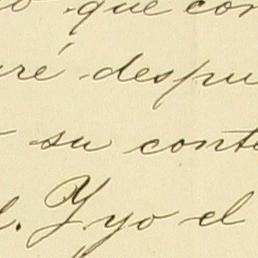 que con
ré despu
su conte
. Y yo el